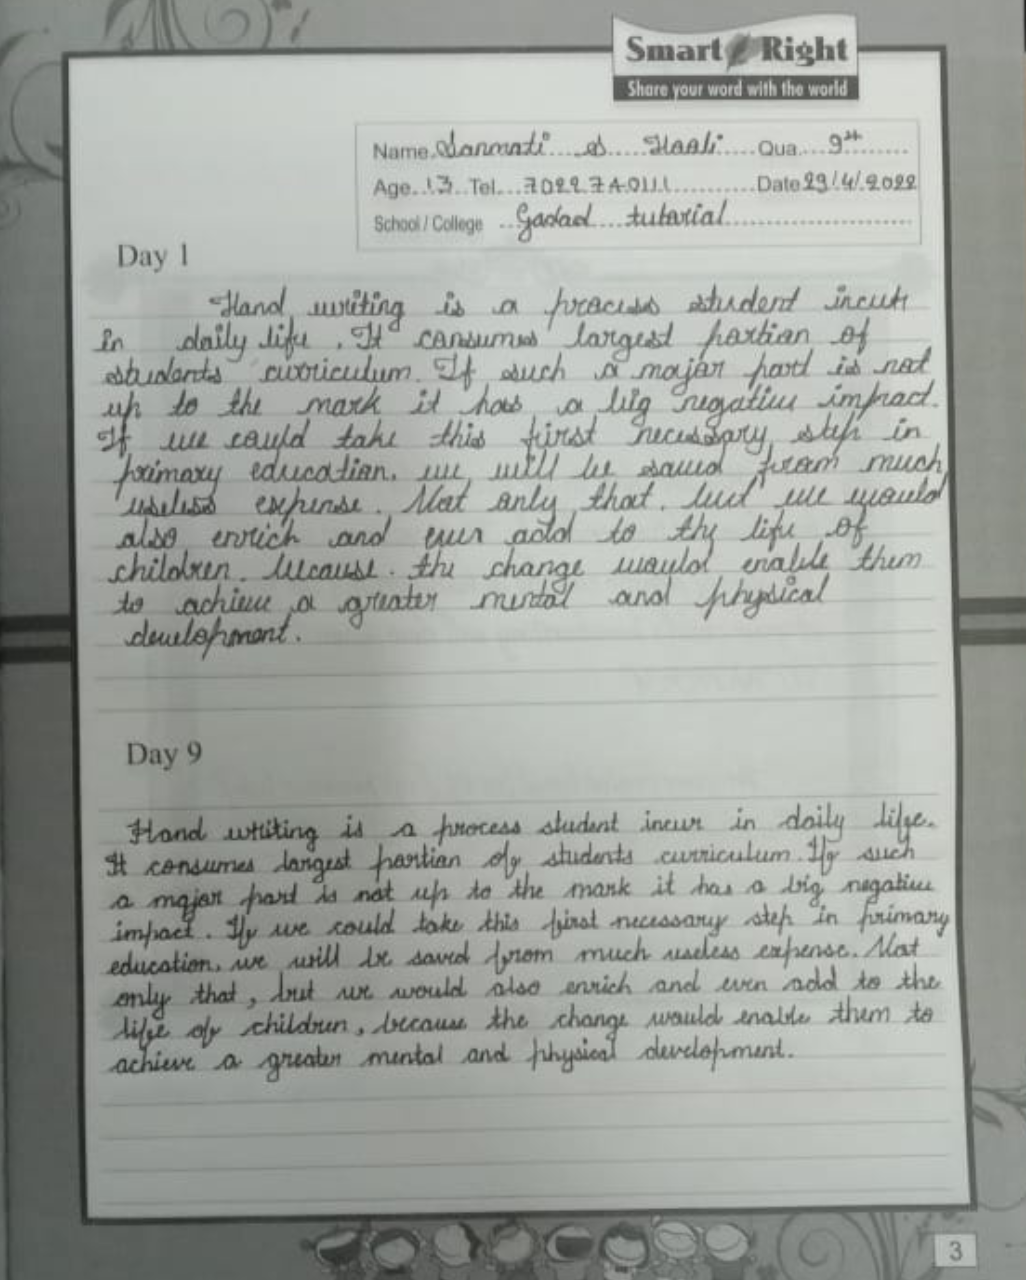 Smart Right
Share your word with the world
Name Sanmati S Qua. 9th
Age 13 Tel. Date 29/4/2022
School / College Gadad tutorial
Day 1
Hand writing is a process student incur
in daily life. It consumes largest portion of
students curriculum. If such a major part is not
up to the mark it has a big negative impact.
If we could take this first necessary step in
primary education. we will be saved from much
useless expense. Not only that. but we would
also enrich and even add to the life of
children. because. the change would enable them
to achieve a greater mental and physical
development.
Day 9
Hand writing is a process student incur in daily life.
It consumes largest portian of students curriculum. If such
a major part is not up to the mark it has a big negative
impact. If we could take this first necessary step in primary
education, we will be saved from much useless expense. Not
only that, but we would also enrich and even add to the
life of children, because the change would enable them to
achieve a greater mental and physical development.
3